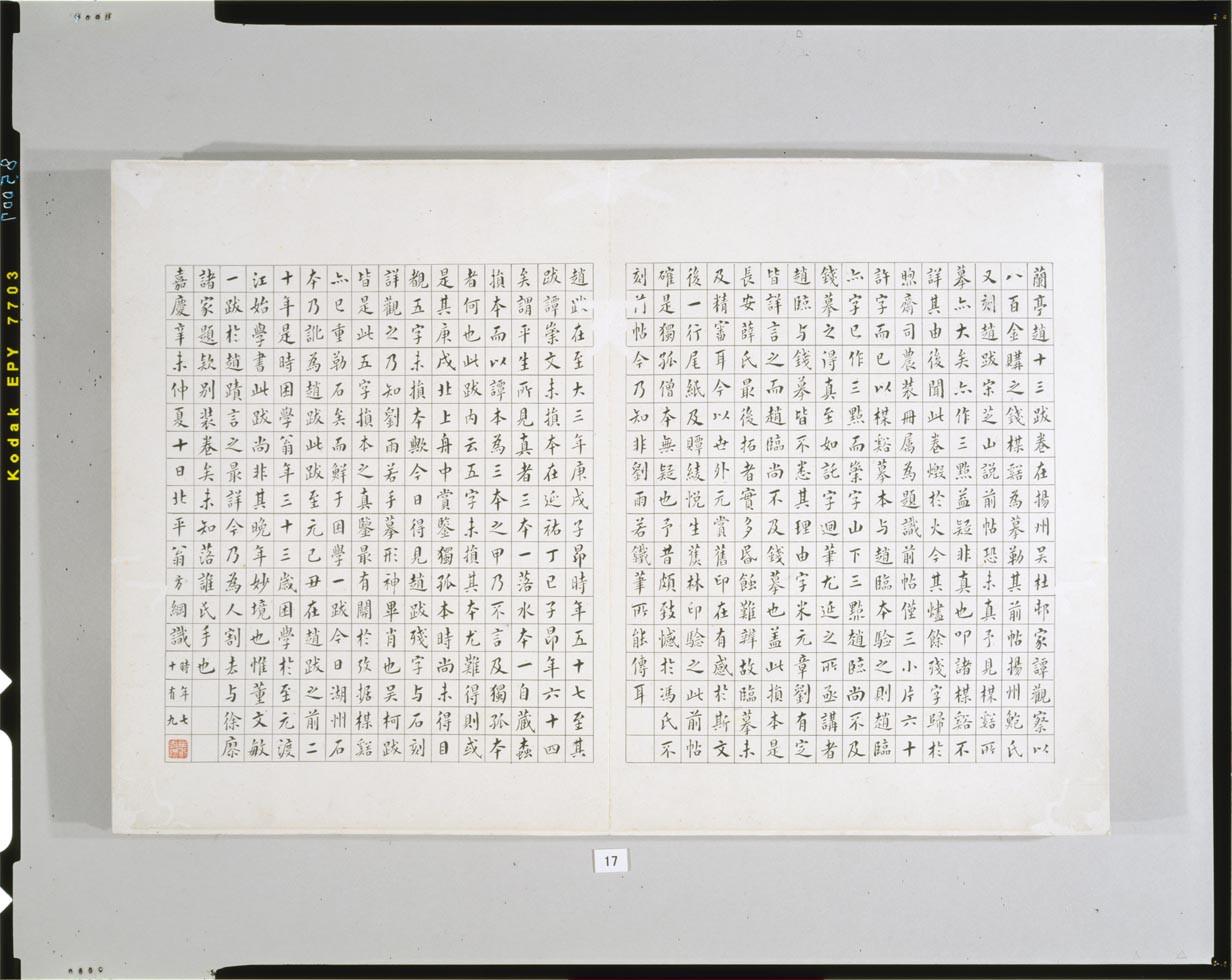 蘭亭趙十三跋卷在揚州吴杜邨家譚觀察以
八百金購之錢楳谿為摹勒其前帖揚州鮑氏
又刻趙跋宋芝山説前帖恐未真予見楳谿所
摹亦大矣亦作三點益疑非真也叩諸楳谿不
詳其由後聞此卷燬於火今其燼餘殘字歸於
煦齋司農裝冊属為題識前帖僅三小片六十
許字而已以楳谿摹本与趙臨本驗之則趙臨
亦字已作三點而崇字山下三點趙臨尚不及
錢摹之得真至如託字迴筆尤延之所亟講者
趙臨与錢摹皆不悉其理由字米元章劉有定
皆詳言之而趙臨尚不及錢摹也盖此損本是
長安薛氏最後拓者實多昬蝕難辨故臨摹未
及精審耳今以世外元賞舊印在有感於斯文
後一行尾紙及贉綾悦生蕉林印驗之此前帖
確是獨孤僧本無疑也予昔頗致憾於馮氏不
刻前帖今乃知非劉雨若鐵筆所能傳耳
趙跋在至大三年庚戌子昂時年五十七至其
跋譚崇文未損本在延祐丁巳子昂年六十四
矣謂平生所見真者三本一落水本一自藏螙
損本而以譚本為三本之甲乃不言及獨孤本
者何也此跋内云五字未損其本尤難得則或
是其庚戌北上舟中賞鑒獨孤本時尚未得目
覩五字未損本歟今日得見趙跋殘字与石刻
詳觀之乃知劉雨若手摹形神畢肖也吴柯跋
皆是此五字損本之真鑒最有關於攷据楳谿
亦已重勒石矣而鮮于困學一跋今日湖州石
本乃訛為趙跋此跋至元己丑在趙跋之前二
十年是時困學翁年三十三歲困學於至元渡
江始學書此跋尚非其晚年妙境也惟董文敏
一跋於趙蹟言之最詳今乃為人割去与徐縻
諸家題欵别裝卷矣未知落誰氏手也
嘉慶辛未仲夏十日北平翁方綱識時年七十有九
17
Kodak EPY 7703